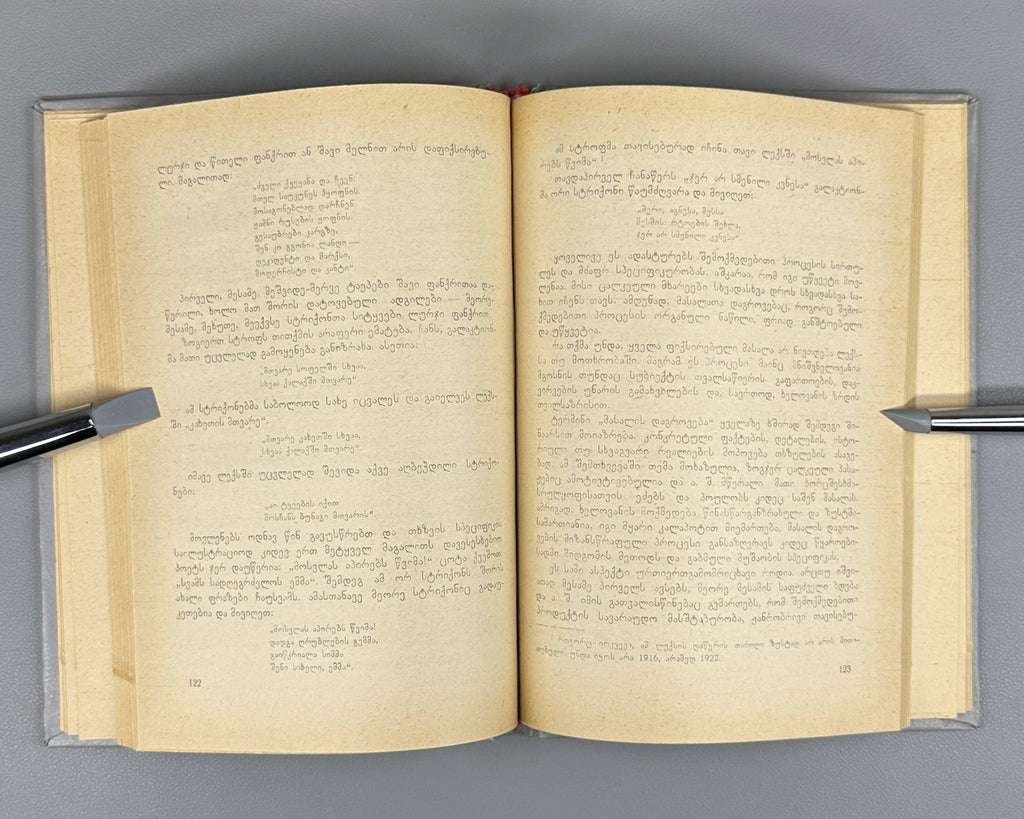 ლურჯი და წითელი ფანქრით ან შავი მელნით არის დაფიქსირებუ-
ლი. მაგალითად:
„ძველი ქვეყანა და ჩვენ:
მთელ საუკუნეს ჰყოფნის.
მოსაგონებლად დარჩნენ
ჟამნი რუსების ყოფნის.
გესაუბრები კარგზე,
შენ კი გგონია ლანდი —
დეკადენტი და მარქსი,
მოდერნისტი და კანტი“.
პირველი, მესამე, მეშვიდე-მერვე ტაეპები შავი ფანქრითაა და-
წერილი, ხოლო მათ შორის დატოვებული ადგილები — მეორე-
მესამე, მეხუთე, მეექვსე სტრიქონთა სიტყვები, ლურჯი ფანქრით.
ზოგიერთ სტროფს თითქმის არაფერი ემატება. ჩანს, გალაკტიონ-
მა მათი უცვლელად გამოყენება განიზრახა. ასეთია:
„მთვარე სოფელში სხვაა,
სხვაა ქალაქში მთვარე“
ამ სტრიქონებმა საბოლოოდ სახე იცვალეს და გაიელვეს ლექს-
ში „კახეთის მთვარე“.
„მთვარე კახეთში სხვაა,
სხვაა ქალაქში მთვარე“.
იმავე ლექსში უცვლელად შევიდა აქვე აღბეჭდილი სტრიქო-
ნები:
„აი ტყეების იქით
მოსჩანს ბუნაგი მთვარის“.
მოვლენებს ოდნავ წინ გავუსწრებთ და თხზვის სპეციფიკის
საილუსტრაციოდ კიდევ ერთ მეტყველ მაგალითს დავესესხებით
პოეტს ჯერ დაუწერია: „მოსვლას აპირებს წვიმა!“ ცოტა ქვემოთ:
„სვამს სადღეგრძელოს ემმა“. შემდეგ ამ ორ სტრიქონს შორის
ახალი ფრაზები ჩაუსვამს. ამასთანავე მეორე სტრიქონიც გადაუ-
კეთებია და მივიღეთ:
„მოსვლას აპირებს წვიმა!
დადგა ღრუბლების გემმა,
გაიწკრიალა სიმმა
შენი სახელი, ემმა“.
122
ამ სტროფმა თავისებურად იჩინა თავი ლექსში „მოსვლას აპი-
რებს წვიმა“ ¹.
თავდაპირველ ჩანაწერს „ჯერ არ სმენილი კვნესა“ გალაკტიონ-
მა ორი სტრიქონი წაუმძღვარა და მივიღეთ:
„მერი, აგნესა, მესსა
მესმის რტოების შეხლა,
ჯერ არ სმენილი კვნესა“.
ყოველივე ეს ადასტურებს შემოქმედებითი პროცესის სირთუ-
ლეს და მძაფრ სპეციფიკურობას. აშკარაა, რომ იგი უწყვეტი მოვ-
ლენაა. მისი ცალკეული მხარეები სხვადასხვა დროს სხვადასხვა სა-
ხით იჩენს თავს. ამდენად, მასალათა დაგროვებაც, როგორც შემო-
ქმედებითი პროცესის ორგანული ნაწილი, ფრიად განშტოებული
და უწყვეტია.
რა თქმა უნდა, ყველა ფიქსირებული მასალა არ ნივთდება ლექს-
სა თუ მოთხრობაში. მაგრამ ეს პროცესი მაინც მნიშვნელოვანია
მგოსნის თუნდაც სუბიექტის თვალსაწიერის გაფართოების, დაკ-
ვირვების უნარის გამახვილების და, საერთოდ, ხელოვანის ზრდის
თვალსაზრისით.
ტერმინი „მასალის დაგროვება“ ყველაზე ხშირად შემდეგი ში-
ნაარსით მოიაზრება. კონკრეტული ფაქტების, დეტალების, ისტო-
რიული თუ სხვაგვარი რეალიების მოპოვება თხზულების ასაგე-
ბად. ამ შემთხვევაში თემა მოხაზულია, ზოგჯერ ცალკეული პასა-
ჟებიც ამოტივტივებულია და ა. შ. მწერალი მათი ხორცშესხმა-
სრულყოფისათვის ეძებს და პოულობს კიდეც საშენ მასალას.
ამრიგად, ხელოვანის მოქმედება წინასწარგანზრახული და ზუსტმი-
სამართიანია, იგი მყარი კალაპოტით მიემართება. მასალის დაგრო-
ვების მიზანსწრაფული პროცესი განსაზღვრავს კიდეც წყაროები-
სადმი მიდგომის მეთოდს და გაბმული მუშაობის სპეციფიკას.
ეს სამი ასპექტი ურთიერთგამომრიცხავი როდია. არცთუ იშვი-
ათად მესამე პირველს ავსებს, მეორე მესამის საფუძველი ხდება
და ა. შ. იმის გათვალისწინებაც გვმართებს, რომ შემოქმედებითი
პროდუქტის სავარაუდო მასშტაბურობა, ჟანრობრივი თავისებუ-
¹ როგორც ირკვევა, ამ ლექსის დაწერის თარიღი ზუსტად არ არის მითი-
თებული. უნდა იყოს არა 1916, არამედ 1922.
123